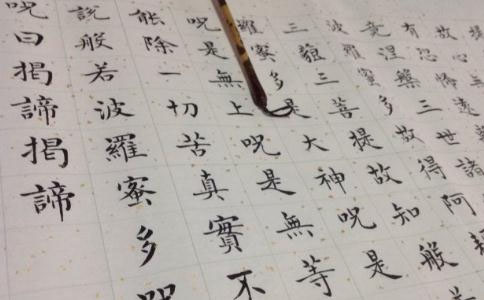 故心無
有恐怖遠
竟涅槃三世諸
波羅蜜多故得阿耨
三藐三菩提故知般若
羅蜜多是大神呪是
呪是無上呪是無等
能除一切苦真實不
說般若波羅蜜多呪
呪曰揭諦揭諦